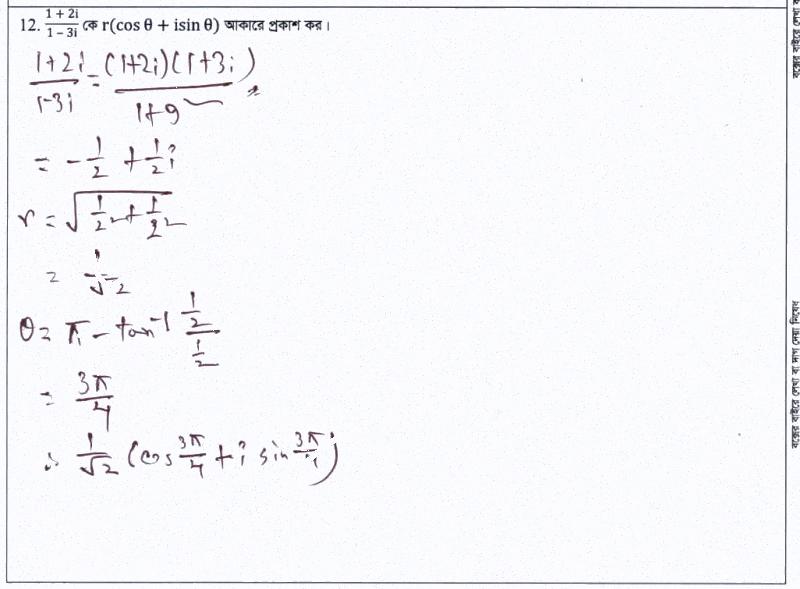 12. (1 + 2i)/(1 – 3i) কে r(cos θ + isin θ) আকারে প্রকাশ কর।
(1+2i)/(1-3i) = (1+2i)(1+3i)/(1+9)
= -1/2 + 1/2 i
r = √(1/2² + 1/2²)
= 1/√2
θ = π - tan⁻¹ (1/2)/(1/2)
= 3π/4
∴ 1/√2 (cos 3π/4 + i sin 3π/4)
বক্সের বাইরে লেখা বা দাগ দেয়া নিষেধ